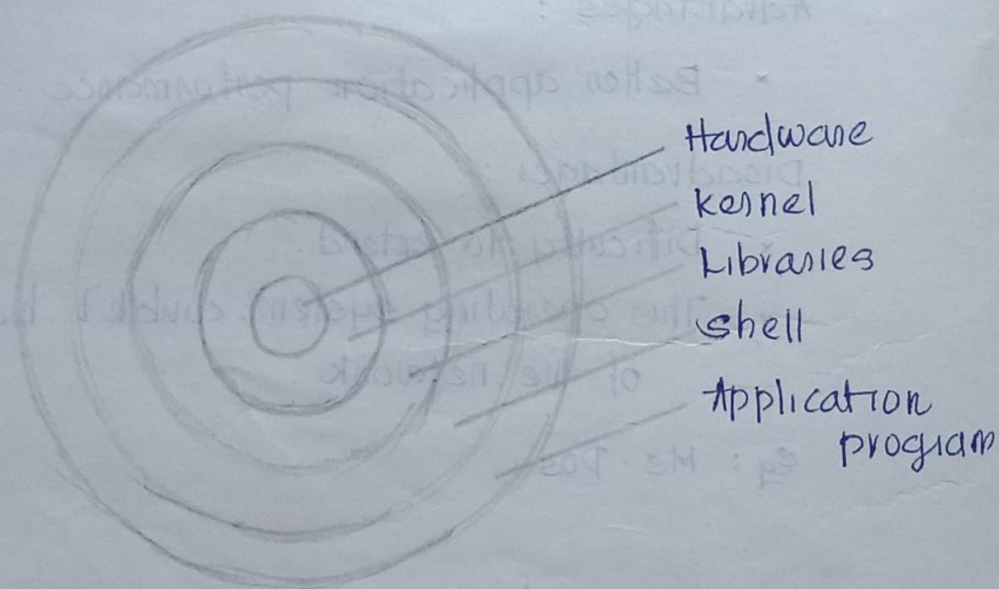 Hardware
kernel
Libraries
shell
Application
program